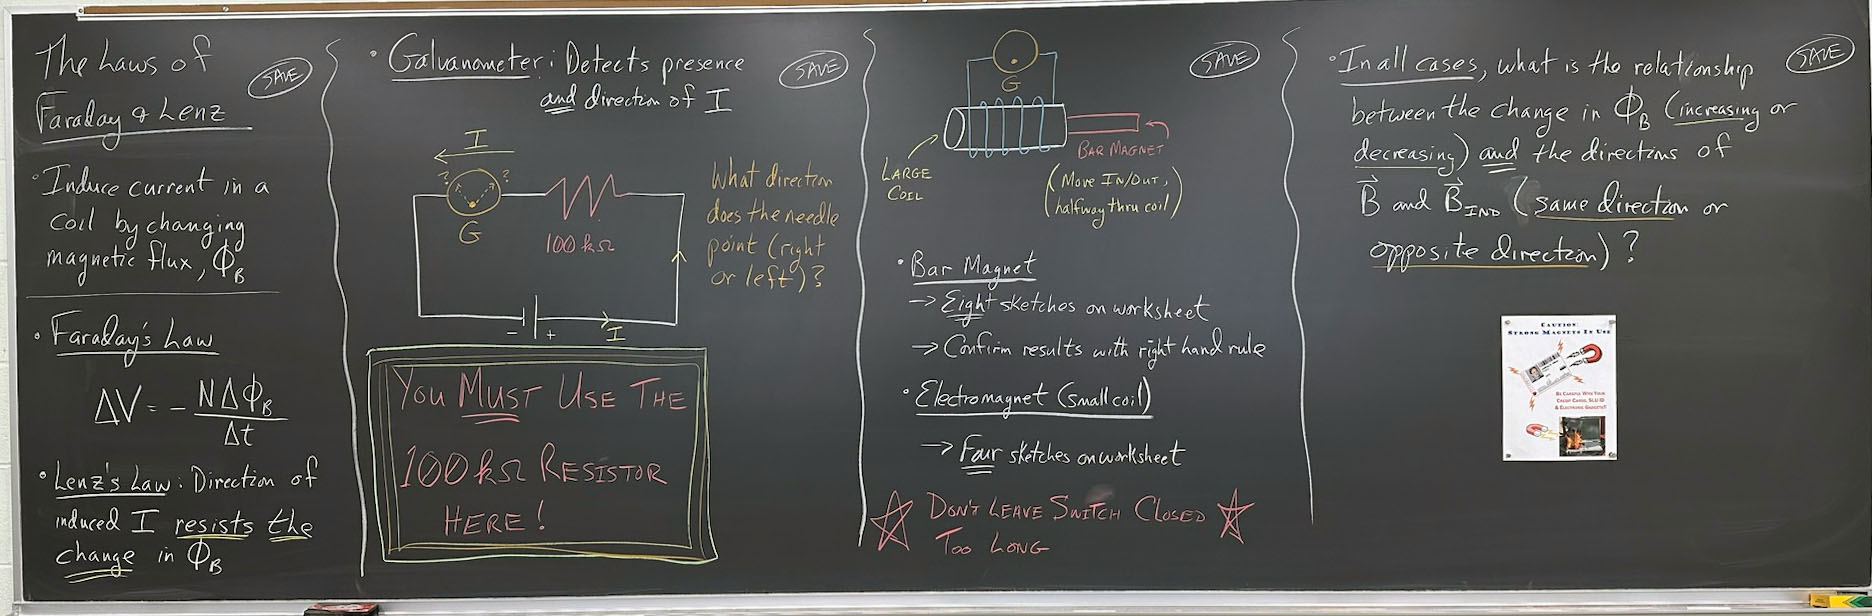 The Laws of
Faraday & Lenz
SAVE
• Induce current in a
coil by changing
magnetic flux, Φ_B
• Faraday's Law
ΔV = - NΔΦ_B / Δt
• Lenz's Law: Direction of
induced I resists the
change in Φ_B
• Galvanometer: Detects presence
and direction of I
SAVE
I
? ?
G
100 kΩ
- +
I
What direction
does the needle
point (right
or left)?
YOU MUST USE THE
100 kΩ RESISTOR
HERE!
SAVE
G
LARGE
COIL
BAR MAGNET
(MOVE IN/OUT,
halfway thru coil)
• Bar Magnet
→ Eight sketches on worksheet
→ Confirm results with right hand rule
• Electromagnet (small coil)
→ Four sketches on worksheet
DON'T LEAVE SWITCH CLOSED
TOO LONG
• In all cases, what is the relationship
SAVE
between the change in Φ_B (increasing or
decreasing) and the directions of
B⃗ and B⃗_IND (same direction or
opposite direction)?
CAUTION:
STRONG MAGNETS IN USE
BE CAREFUL WITH YOUR
CREDIT CARDS, SLU ID
& ELECTRONIC GADGETS!!